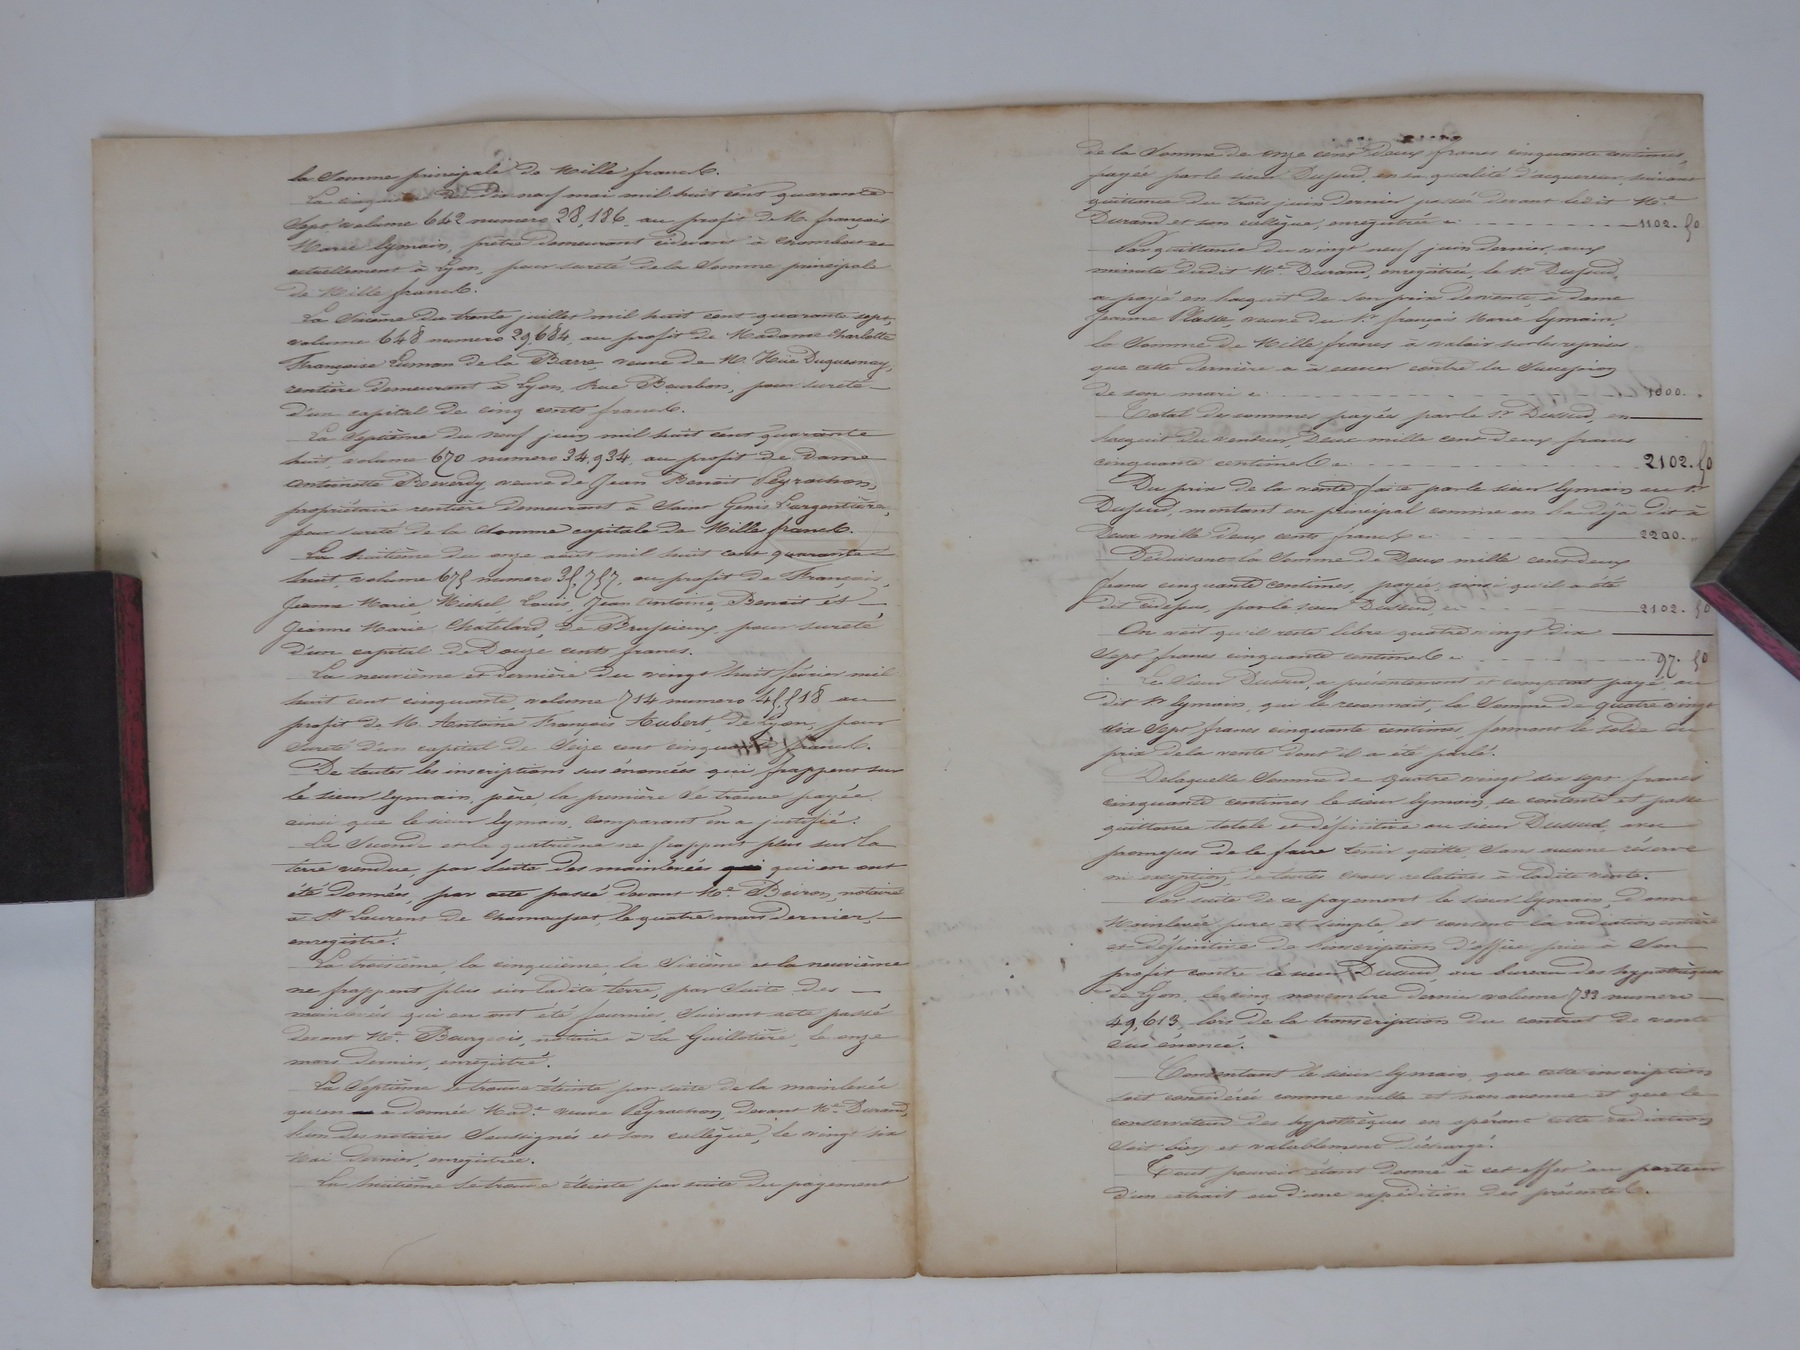 la Somme principale de Mille francs.
La cinquième du dix neuf mai mil huit cent quarante
Sept volume 642 numero 28,186, au profit de M. françois
Marie Eymain, prêtre demeurant cidevant à Chambost et
actuellement à Lyon, pour sureté de la Somme principale
de Mille francs.
La Sixième du trente juillet mil huit cent quarante sept,
volume 648 numero 29,684, au profit de Madame Charlotte
Françoise Luman de la Barre, veuve de M. Hüe Duquesnay,
rentière demeurant à Lyon, Rue Bourbon, pour sureté
d'un capital de cinq cents francs.
La Septième du neuf juin mil huit cent quarante
huit, volume 670 numero 34,934, au profit de Dame
Antoinette Reverdy veuve de Jean Benoit Peyrachon,
propriétaire rentière demeurant à Saint Genis L'argentière,
pour sureté de la Somme capitale de Mille francs.
La huitième du onze août mil huit cent quarante
huit, volume 675 numero 35,757, au profit de François,
Jeanne Marie, Michel, Louis, Jean Antoine, Benoit et
Jeanne Marie Chatelard, de Brussieux, pour sureté
d'un capital de Douze cents francs.
La neuvième et dernière du vingt huit février mil
huit cent cinquante, volume 714 numero 45,518 au
profit de M. Antoine François Aubert, de Lyon, pour
sureté d'un capital de Seize cent cinquante francs.
De toutes les inscriptions sus énoncées qui frappent sur
le sieur Eymain, père, la première se trouve payée
ainsi que le sieur Eymain, comparant en a justifié.
La Seconde et la quatrième ne frappent plus sur la
terre vendue, par suite des mainlevées qui en ont
été données, par acte passé devant Me Boiron, notaire
à St Laurent de Chamousset, le quatre mars dernier,
enregistré.
La troisième, la cinquième, la Sixième et la neuvième
ne frappent plus sur ladite terre, par suite des
mainlevées qui en ont été fournies, suivant acte passé
devant Me Bourgeois, notaire à la Guillotière, le onze
mars dernier, enregistré.
La Septième se trouve éteinte par suite de la mainlevée
qu'en a donnée Made veuve Peyrachon, devant Me Durand,
l'un des notaires Soussignés et son collègue, le vingt six
Mai dernier, enregistrée.
La huitième se trouve éteinte par suite du payement
de la Somme de onze cent deux francs cinquante centimes,
payée par le sieur Dussud, en sa qualité d'acquéreur, suivant
quittance du trois juin dernier passée devant ledit Me
Durand et son collègue, enregistrée ci 1102. 50
Par quittance du vingt neuf juin dernier, aux
minutes dudit Me Durand, enregistrée, le Sr Dussud,
a payé en l'acquit de son prix de vente, à dame
Jeanne Plasse, veuve du Sr françois Marie Eymain,
la Somme de Mille francs à valoir sur les reprises
que cette dernière a à exercer contre la Succession
de son mari ci 1000. "
Total des sommes payées par le Sr Dussud, en
l'acquit du vendeur, Deux mille cent deux francs
cinquante centimes ci 2102. 50
Du prix de la vente faite par le sieur Eymain au Sr
Dussud, montant en principal comme on l'a déjà dit à
Deux mille deux cents francs ci 2200. "
Déduisant la Somme de Deux mille cent deux
francs cinquante centimes, payée, ainsi qu'il a été
dit cidessus, par le sieur Dussud, ci 2102. 50
On voit qu'il reste libre quatre vingt dix
sept francs cinquante centimes ci 97. 50
Le Sieur Dussud, a présentement et comptant payé au
dit Sr Eymain, qui le reconnait, la Somme de quatre vingt
dix sept francs cinquante centimes, formant le solde du
prix de la vente dont il a été parlé.
De laquelle Somme de quatre vingt dix sept francs
cinquante centimes le sieur Eymain, se contente et passe
quittance totale et définitive au sieur Dussud, avec
promesses de le faire tenir quitte, Sans aucune réserve
ni exception, de toutes choses relatives à ladite vente.
Par suite de ce payement le sieur Eymain, donne
Mainlevée pure et simple, et consent la radiation entière
et définitive de l'inscription d'office prise à Son
profit contre le sieur Dussud, au bureau des hypothèques
de Lyon, le cinq novembre dernier volume 733 numero
49,613, lors de la transcription du contrat de vente
sus énoncé.
Consentant le sieur Eymain, que cette inscription
soit considérée comme nulle et non avenue et que le
conservateur des hypothèques en opérant cette radiation
soit bien et valablement déchargé.
Tout pouvoir étant donné à cet effet au porteur
d'un extrait ou d'une expédition des présentes.